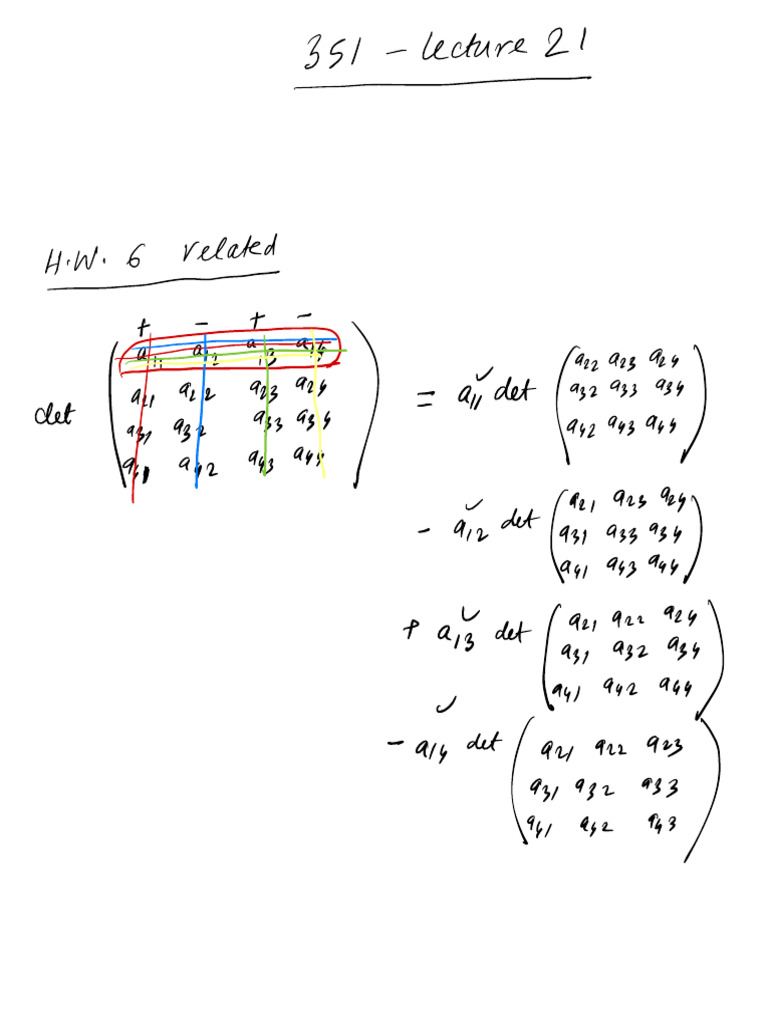 351 - lecture 21
H.W. 6 related
+ - + -
a11 a12 a13 a14
a21 a22 a23 a24
det
a31 a32 a33 a34
a41 a42 a43 a44
= a11 det
a22 a23 a24
a32 a33 a34
a42 a43 a44
- a12 det
a21 a23 a24
a31 a33 a34
a41 a43 a44
+ a13 det
a21 a22 a24
a31 a32 a34
a41 a42 a44
- a14 det
a21 a22 a23
a31 a32 a33
a41 a42 a43